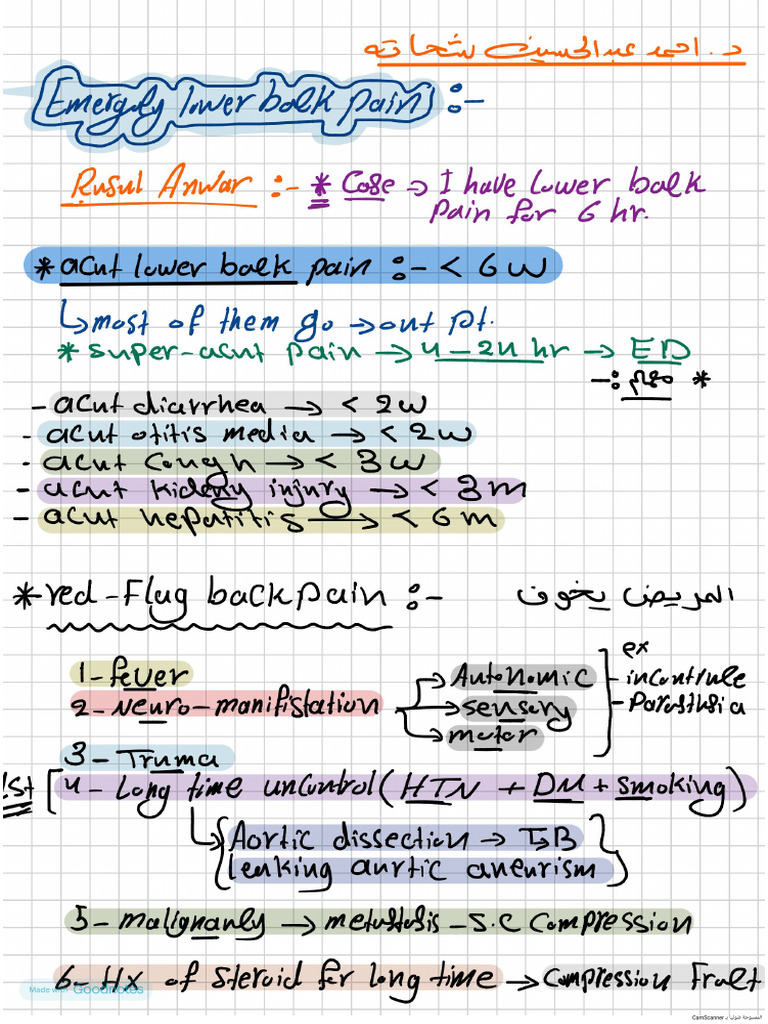 د. احمد عبدالحسين شحاته
Emergely lower back pain :-
Rusul Anwar :- * Case → I have lower back
pain for 6 hr.
* acut lower back pain :- < 6 w
↳ most of them go → out pt.
* super-acut pain → 4 – 24 hr → ED
* مهم :-
- acut diarrhea → < 2w
- acut otitis media → < 2w
- acut cough → < 3w
- acut kideny injury → < 3m
- acut hepatitis → < 6m
* red-Flug back pain :- المريض يخوف
1- fever
2- Neuro-manifistation → Autonomic
→ sensory
→ motor
ex
- incontrule
- Parasthsia
3- Truma
4- Long time uncontrol (HTN + DM + smoking)
↳ Aortic dissection →
leaking aurtic aneurism
5- malignanly → metastasis - S.C Compression
6- Hx of steroid for long time → Compression Fralt
Made with Goodnotes
الممسوحة ضوئيا بـ CamScanner